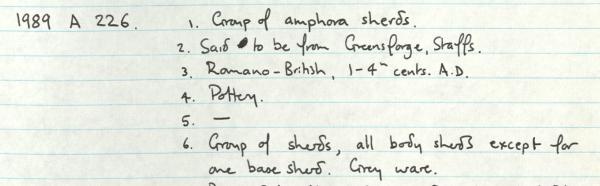 1989 A 226. 1. Group of amphora sherds.
2. Said to be from Greensforge, Staffs.
3. Romano-British, 1-4th cents. A.D.
4. Pottery.
5. —
6. Group of sherds, all body sherds except for
one base sherd. Grey ware.